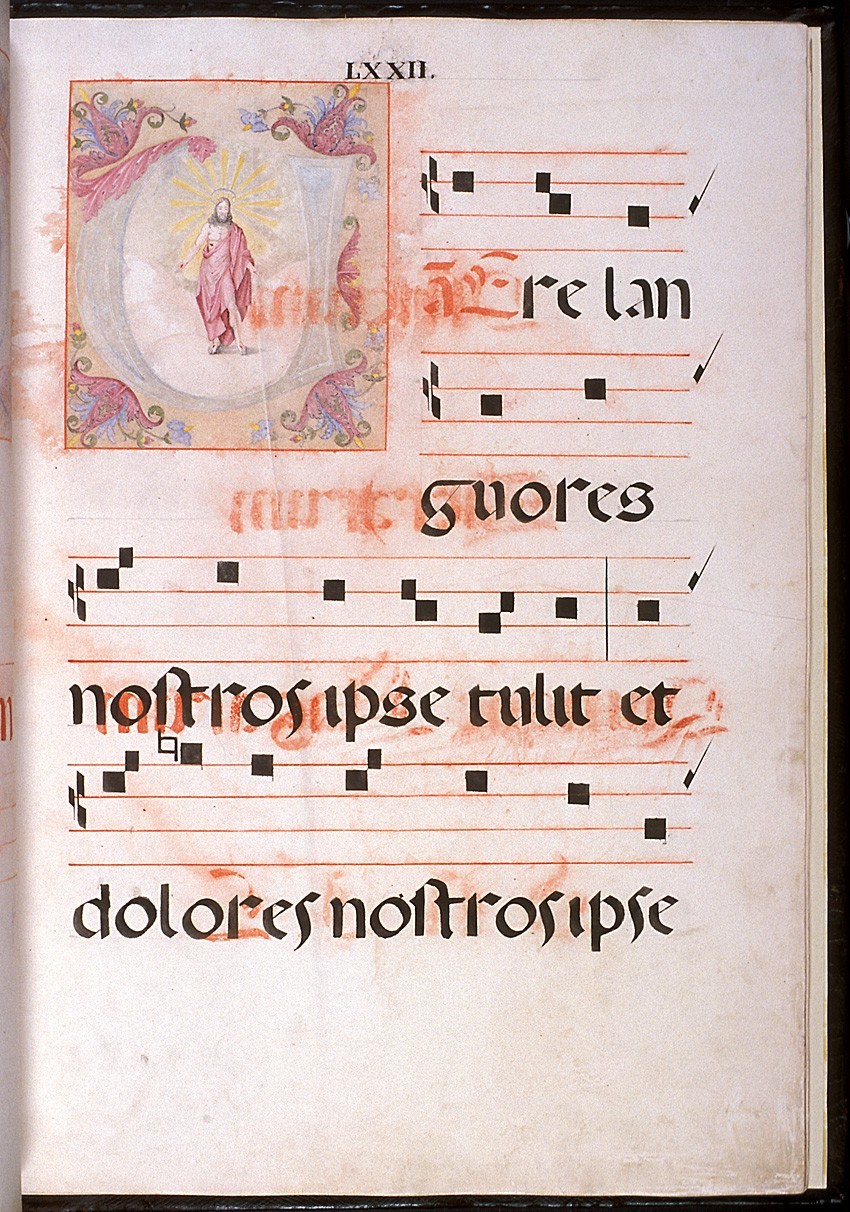 LXXII.
Vere lan
guores
noſtros ipse tulit et
dolores noſtros ipse